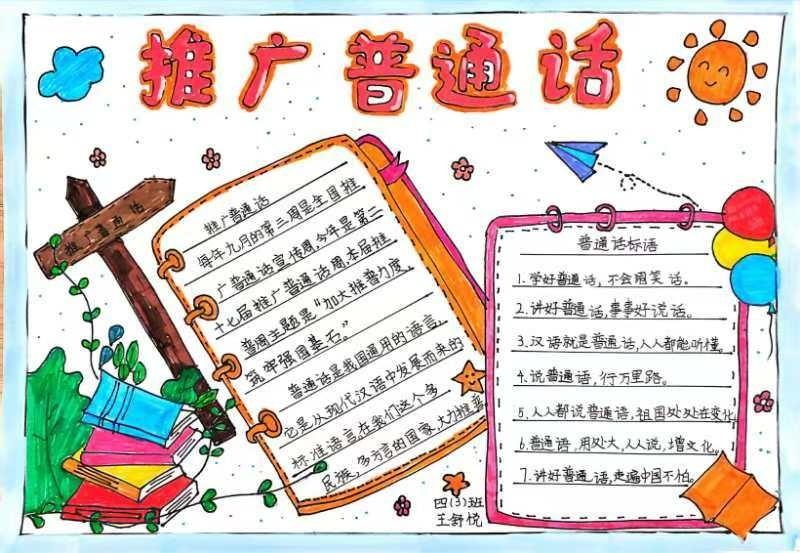 推广普通话
推广普通话
推广普通话
每年九月的第三周是全国推
广普通话宣传周,今年是第二
十七届推广普通话周.本届推
普周主题是“加大推普力度,
筑牢强国基石。”
普通话是我国通用的语言,
它是从现代汉语中发展而来的
标准语言,在我们这个多
民族,多方言的国家,大力推普
普通话标语
1.学好普通话,不会闹笑话。
2.讲好普通话,事事好说话。
3.汉语就是普通话,人人都能听懂。
4.说普通话,行万里路。
5.人人都说普通话,祖国处处在变化。
6.普通话,用处大,人人说,增文化。
7.讲好普通话,走遍中国不怕。
四(3)班
王舒悦